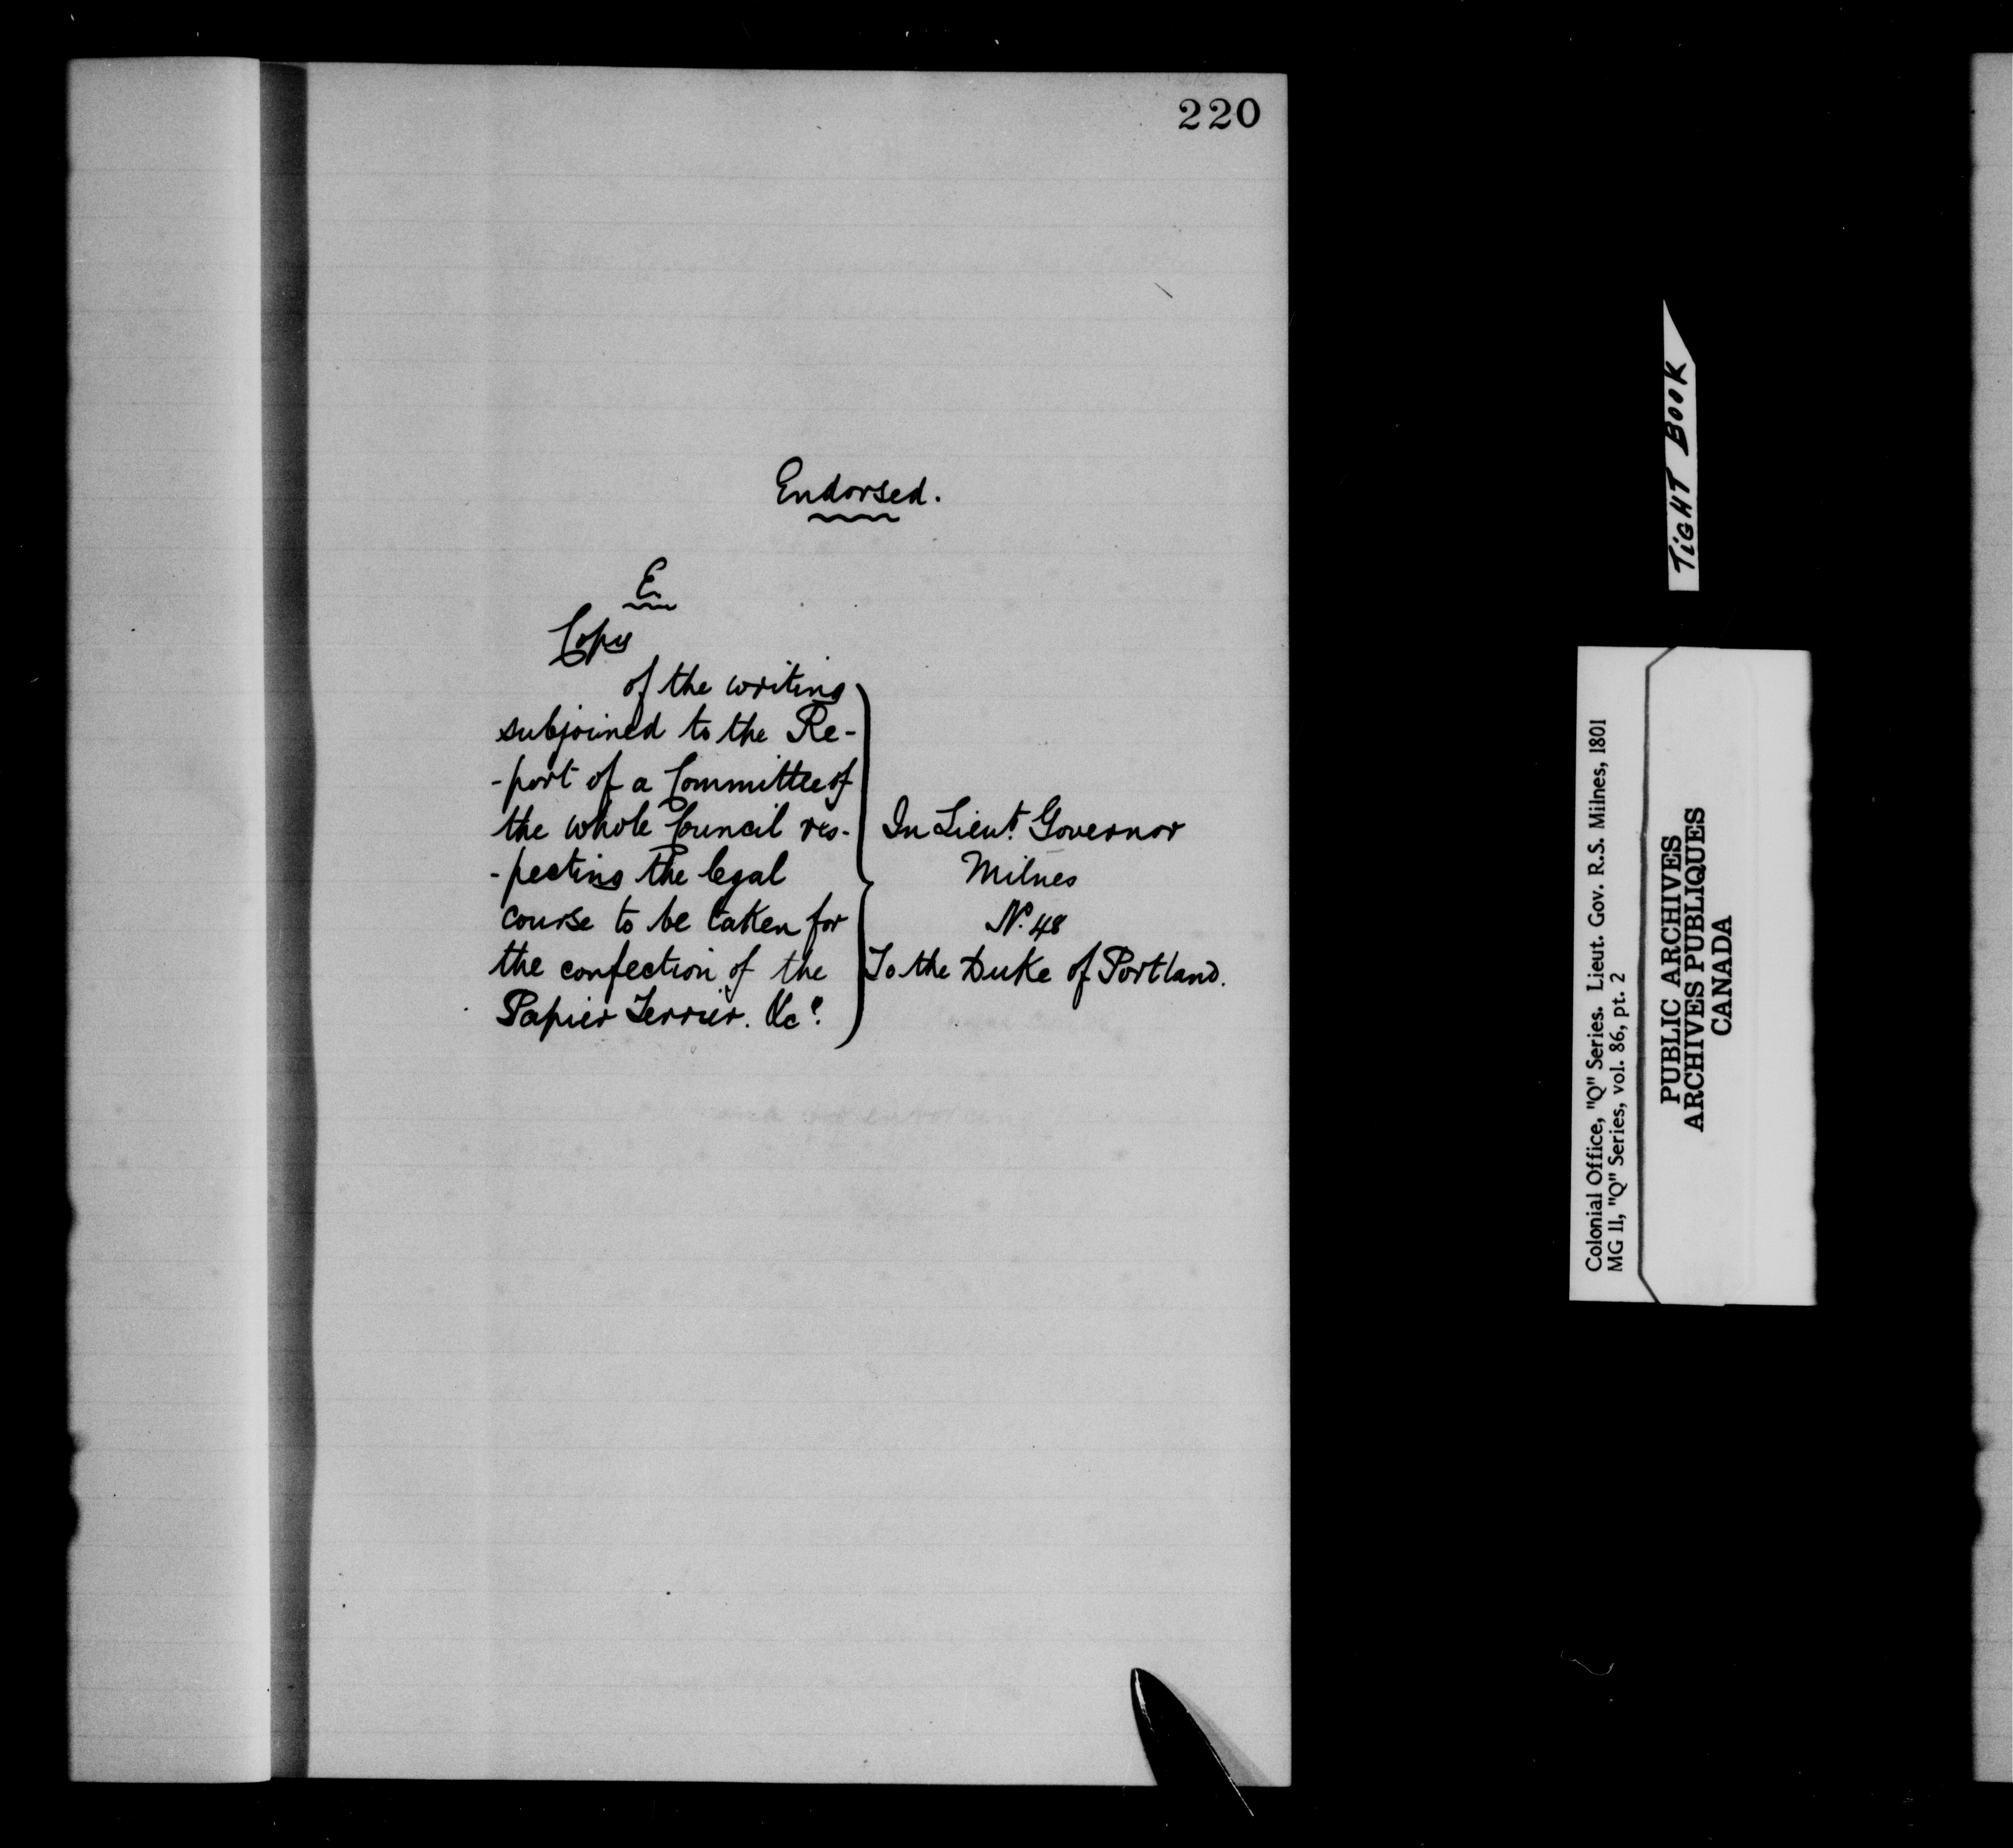 220
Endorsed.
E
Copy
of the writing
subjoined to the Re-
-port of a Committee of
the whole Council res-
-pecting the legal
course to be taken for
the confection of the
Papier Terrier. &c.
In Lieut. Governor
Milnes
No. 48
To the Duke of Portland.
TIGHT BOOK
Colonial Office, "Q" Series. Lieut. Gov. R.S. Milnes, 1801
MG 11, "Q" Series, vol. 86, pt. 2
PUBLIC ARCHIVES
ARCHIVES PUBLIQUES
CANADA